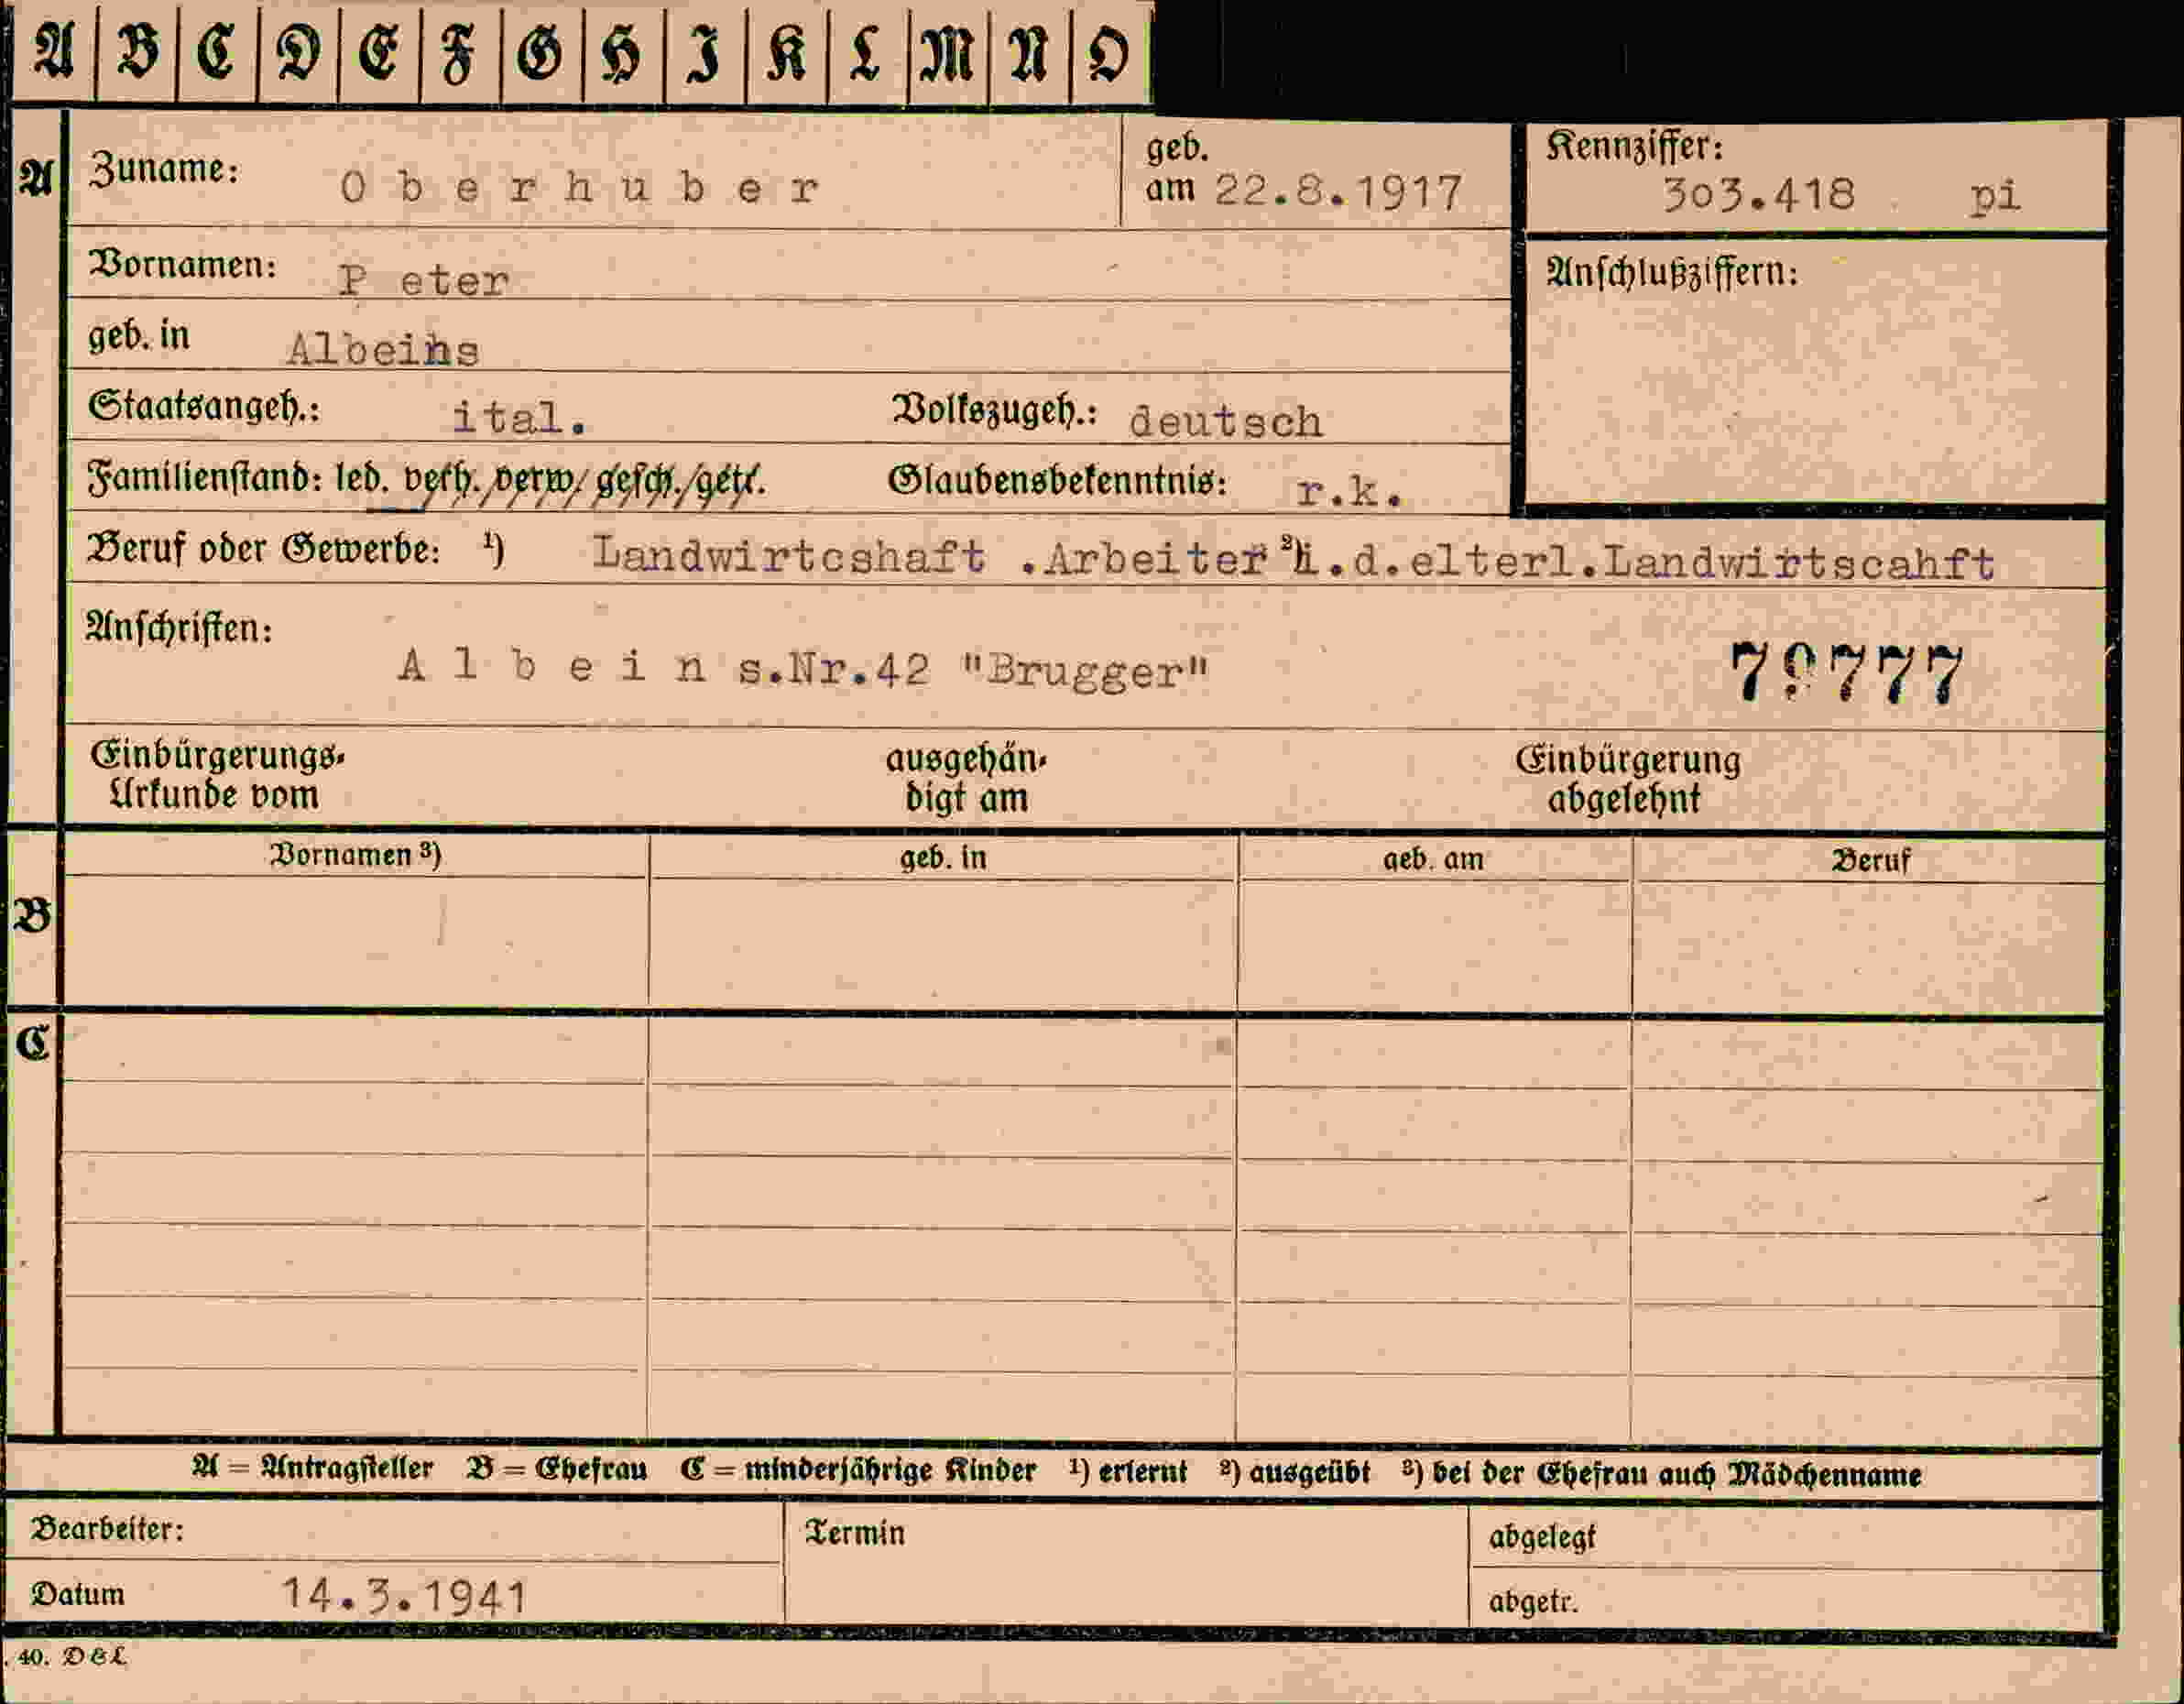 A B C D E F G H I K L M N O
A Zuname: Oberhuber geb. am 22.8.1917 Kennziffer: 303.418 pi
Vornamen: P eter Anschlußziffern:
geb. in Albeins
Staatsangeh.: ital. Volkszugeh.: deutsch
Familienstand: led. verh./verw/gesch./getr. Glaubensbekenntnis: r.k.
Beruf oder Gewerbe: ¹) Landwirtcshaft .Arbeiter ²) i.d.elterl.Landwirtscahft
Anschriften:
A l b e i n s.Nr.42 "Brugger" 
Einbürgerungs- ausgehän- Einbürgerung
Urkunde vom digt am abgelehnt
Vornamen ³) geb. in geb. am Beruf
B
C
A = Antragsteller B = Ehefrau C = minderjährige Kinder ¹) erlernt ²) ausgeübt ³) bei der Ehefrau auch Mädchenname
Bearbeiter: Termin abgelegt
Datum 14.3.1941 abgetr.
. 40. D&L